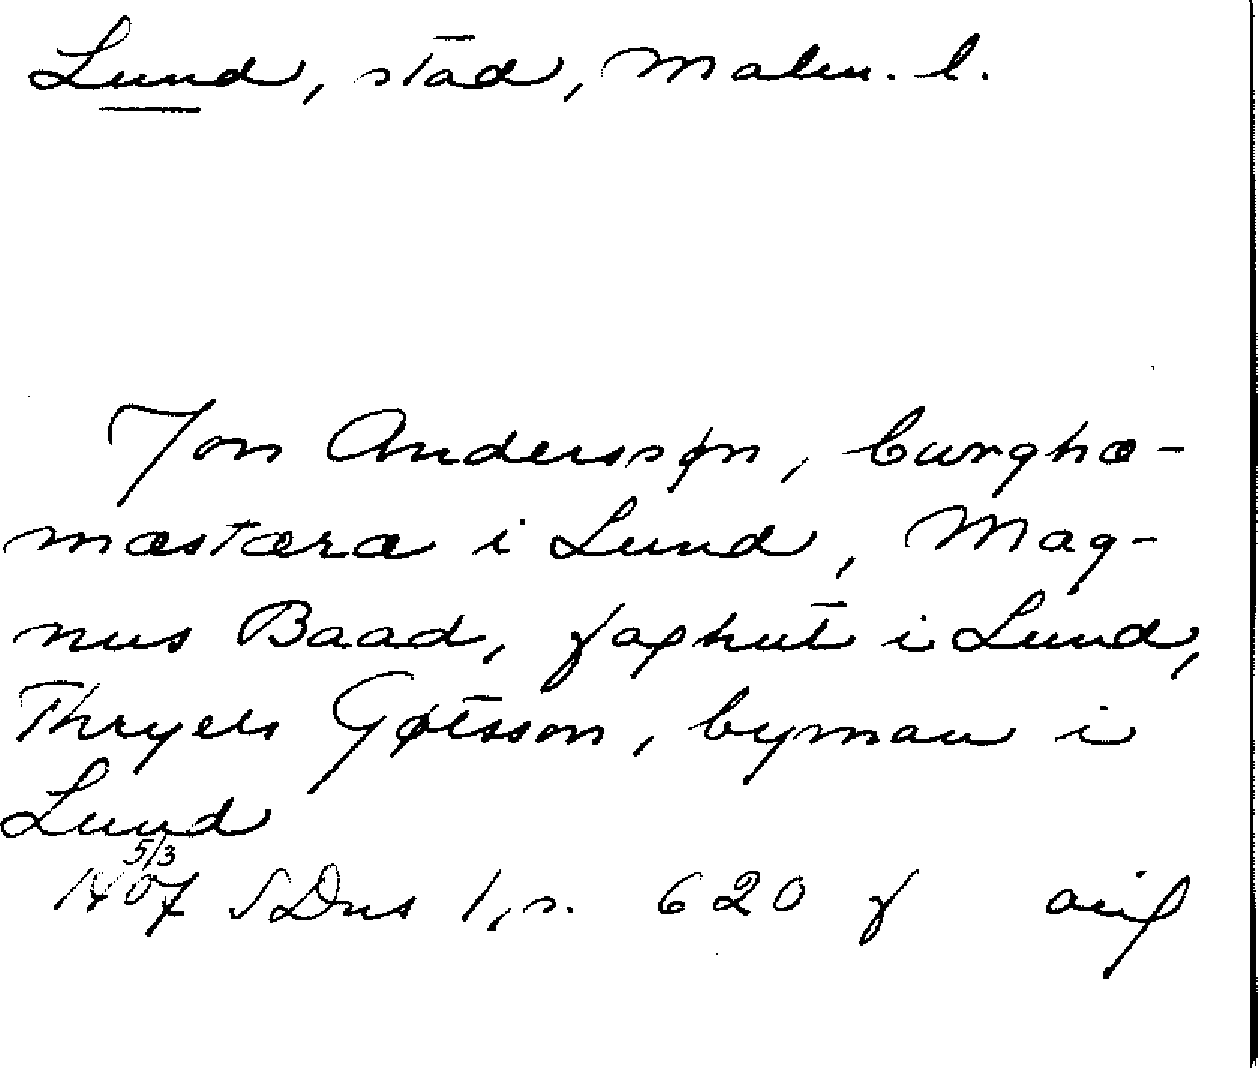 Lund, stad, Malm. l.
Jon Anderssøn, burghæ-
mæstæræ i Lund, Mag-
nus Baad, foghut i Lund,
Thryels Gøtsson, byman i
Lund
5/3
1407 SDns 1, s. 620 f